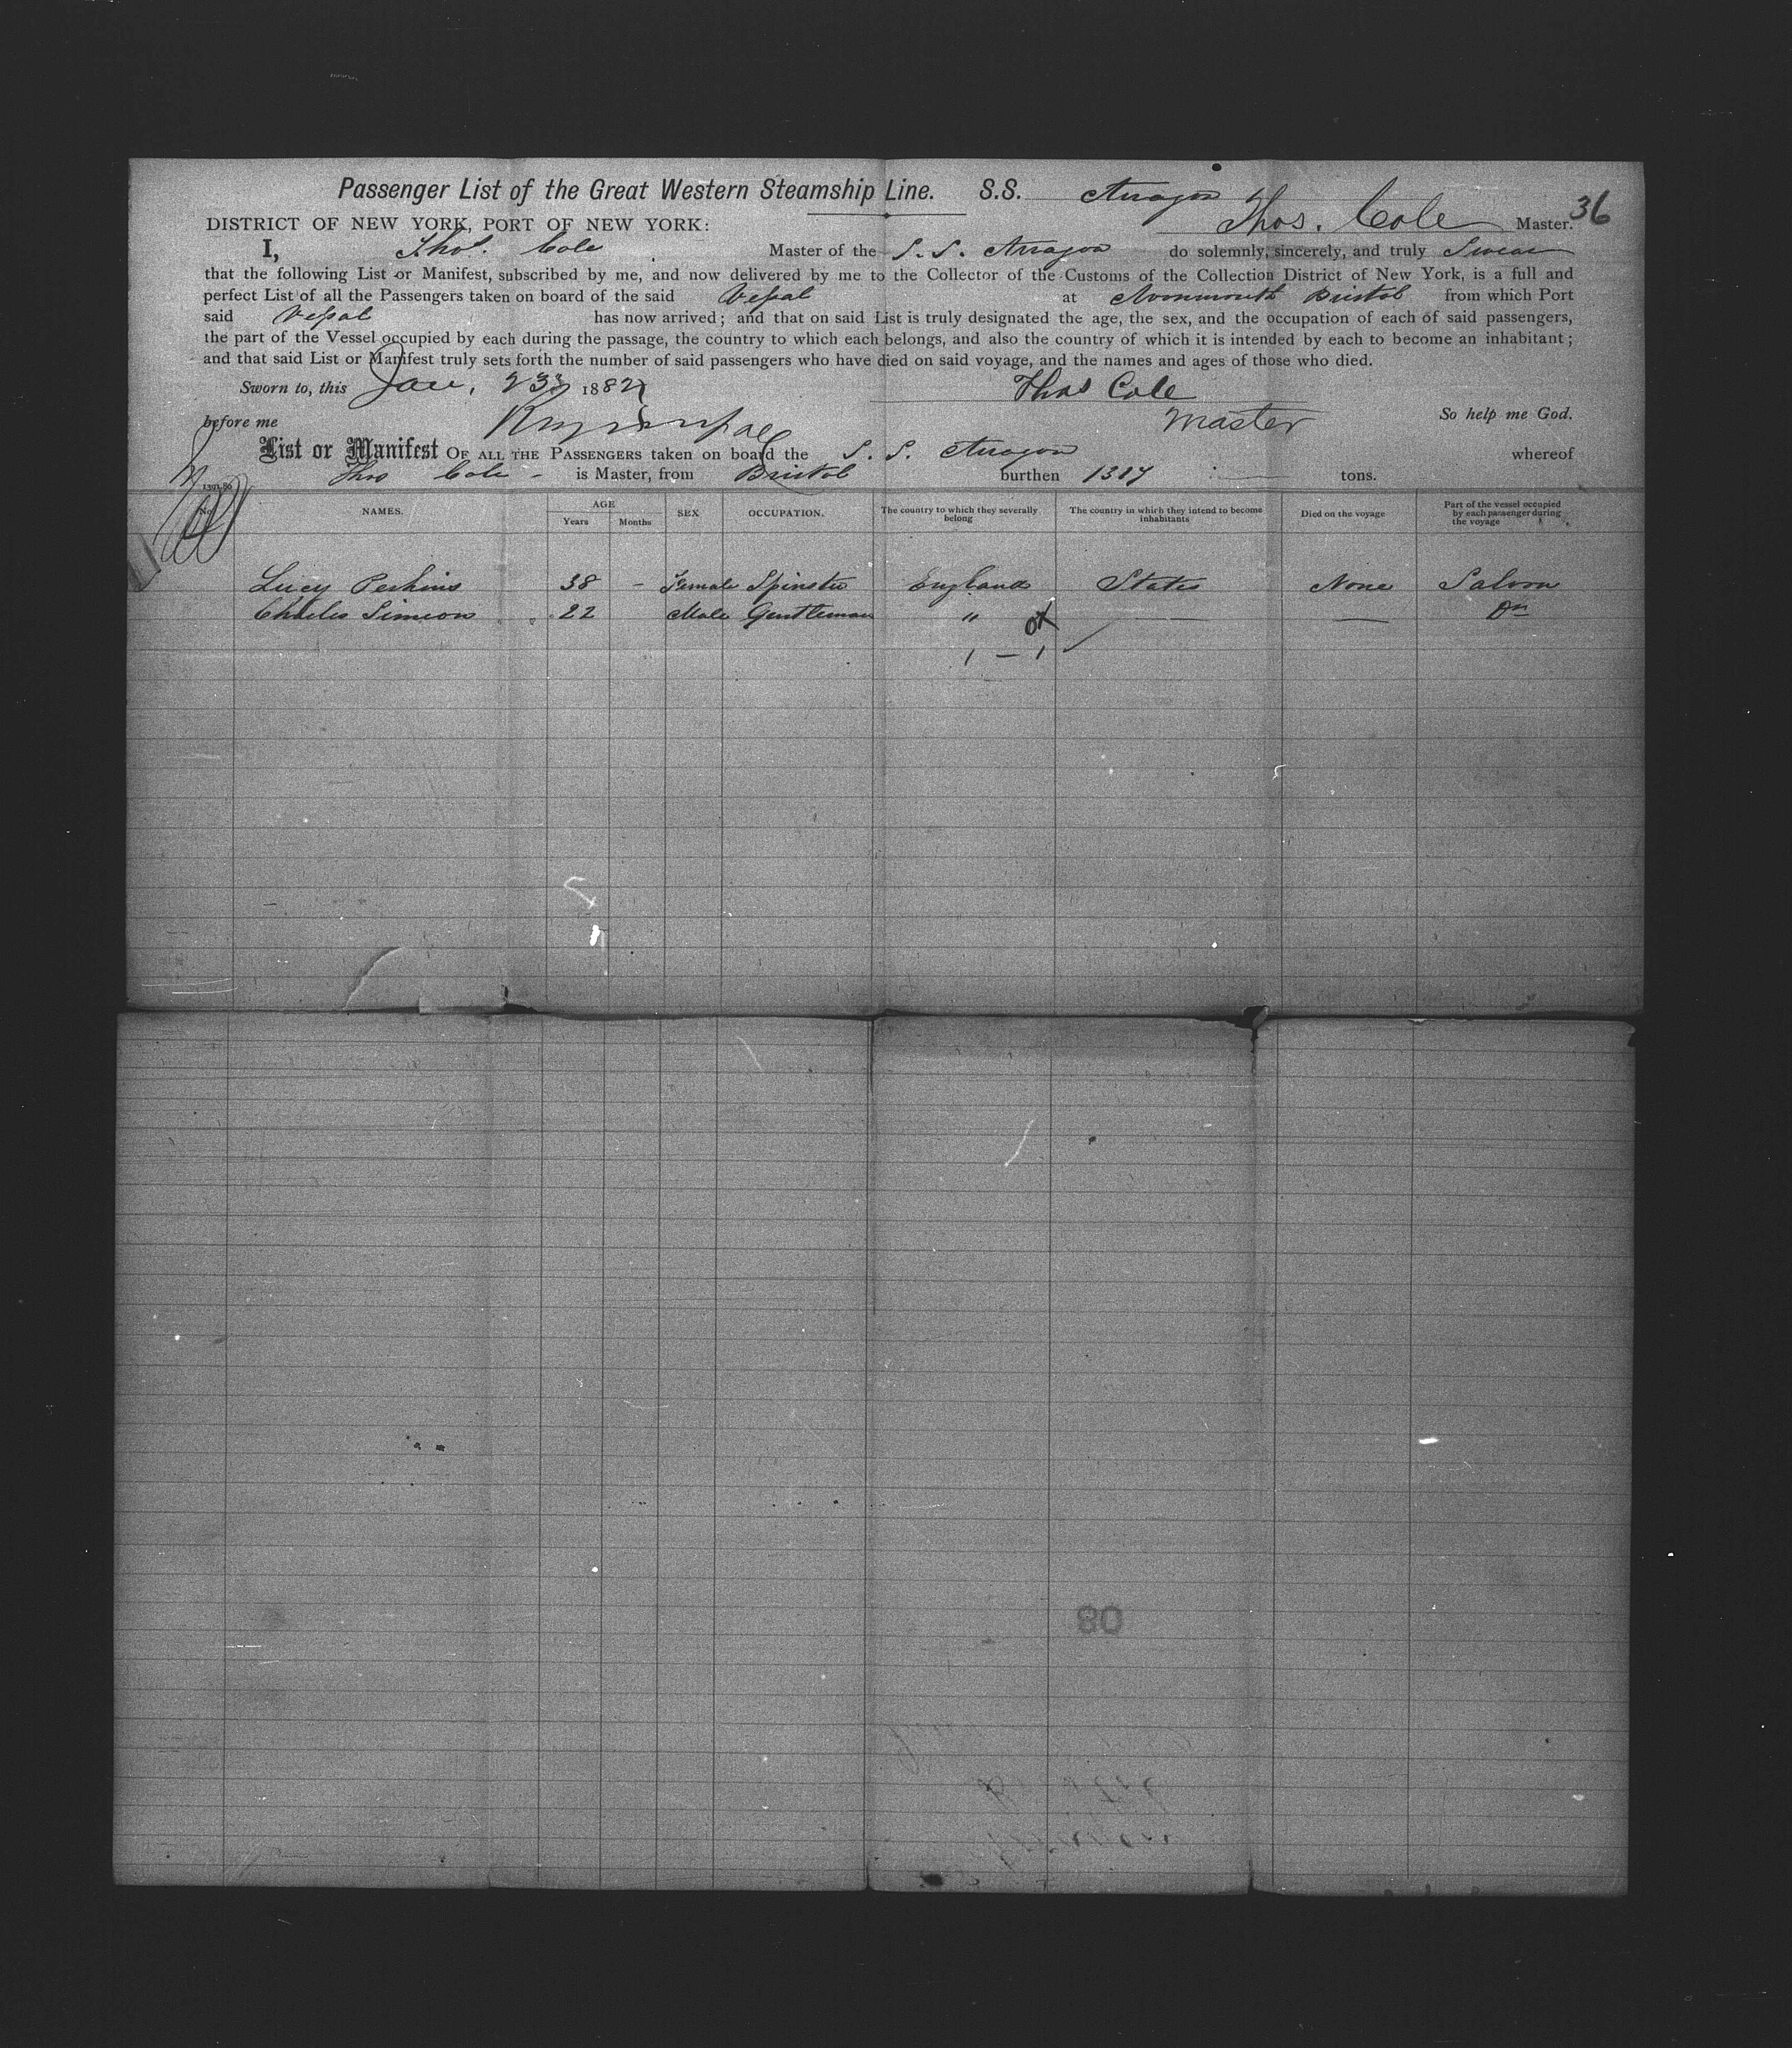 Passenger List of the Great Western Steamship Line. S.S. Arragon
36
DISTRICT OF NEW YORK, PORT OF NEW YORK: Thos. Cole Master.
I, Thos. Cole Master of the S. S. Arragon do solemnly, sincerely, and truly Swear
that the following List or Manifest, subscribed by me, and now delivered by me to the Collector of the Customs of the Collection District of New York, is a full and
perfect List of all the Passengers taken on board of the said Vessal at Avonmouth Bristol from which Port
said Vessal has now arrived; and that on said List is truly designated the age, the sex, and the occupation of each of said passengers,
the part of the Vessel occupied by each during the passage, the country to which each belongs, and also the country of which it is intended by each to become an inhabitant;
and that said List or Manifest truly sets forth the number of said passengers who have died on said voyage, and the names and ages of those who died.
Sworn to, this Jan, 23 1882 Thos Cole
before me Master So help me God.
List or Manifest OF ALL THE PASSENGERS taken on board the S. S. Arragon whereof
Thos Cole - is Master, from Bristol burthen 1317 tons.
No. NAMES. AGE Years Months SEX OCCUPATION. The country to which they severally belong The country in which they intend to become inhabitants Died on the voyage Part of the vessel occupied by each passenger during the voyage
Lucy Perkins 38 - Female Spinster England States None Saloon
Charles Simeon 22 Male Gentleman " — — Do
1 — 1
80